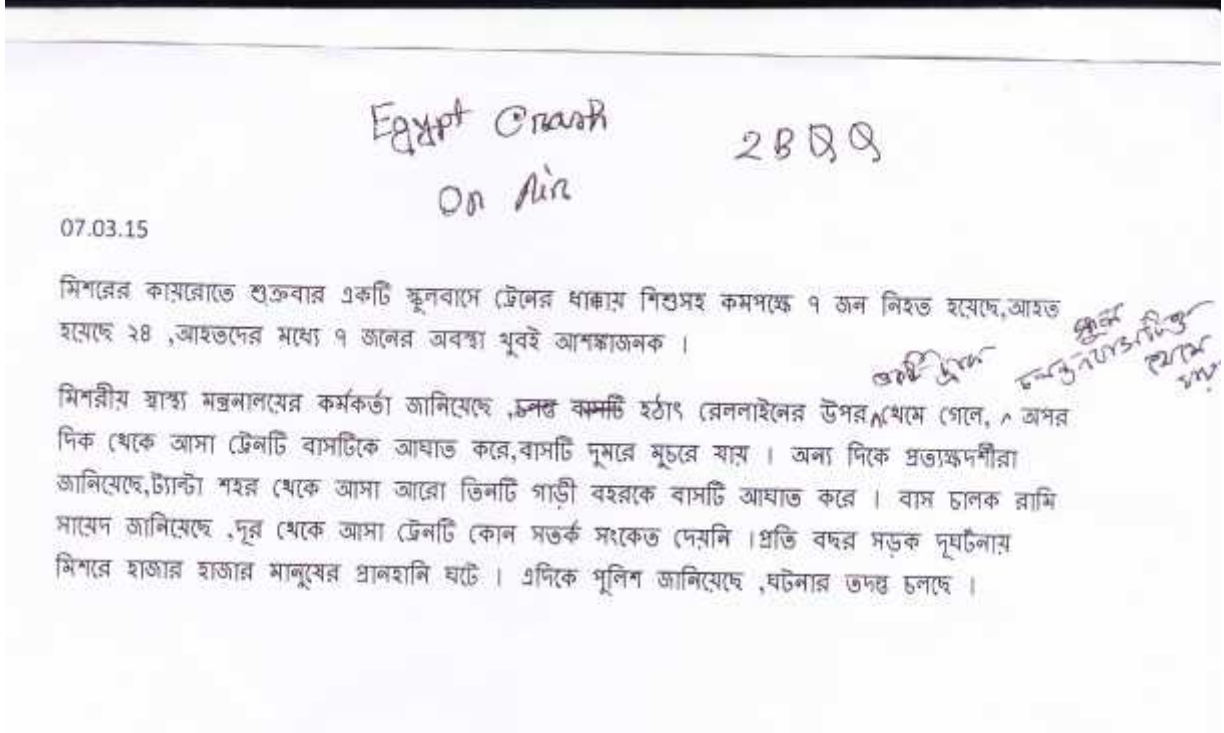 Egypt Crash
2B
On Air
07.03.15
মিশরের কায়রোতে শুক্রবার একটি স্কুলবাসে ট্রেনের ধাক্কায় শিশুসহ কমপক্ষে ৭ জন নিহত হয়েছে,আহত
হয়েছে ২৪ ,আহতদের মধ্যে ৭ জনের অবস্থা খুবই আশঙ্কাজনক ।
স্কুল
থেমে
মিশরীয় স্বাস্থ্য মন্ত্রনালয়ের কর্মকর্তা জানিয়েছে ,চলন্ত বাসটি হঠাৎ রেললাইনের উপর থেমে গেলে, অপর
দিক থেকে আসা ট্রেনটি বাসটিকে আঘাত করে,বাসটি দুমরে মুচরে যায় । অন্য দিকে প্রত্যক্ষদর্শীরা
জানিয়েছে,ট্যান্টা শহর থেকে আসা আরো তিনটি গাড়ী বহরকে বাসটি আঘাত করে । বাস চালক রামি
সায়েদ জানিয়েছে ,দূর থেকে আসা ট্রেনটি কোন সতর্ক সংকেত দেয়নি ।প্রতি বছর সড়ক দূর্ঘটনায়
মিশরে হাজার হাজার মানুষের প্রানহানি ঘটে । এদিকে পুলিশ জানিয়েছে ,ঘটনার তদন্ত চলছে ।